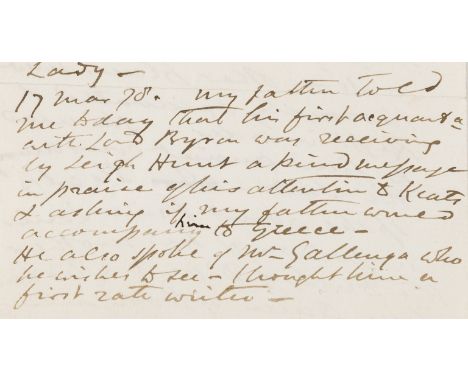 Lady —
17 Mar 78. My father told
me today that his first acquaint-
with Lord Byron was receiving
by Leigh Hunt a kind message
in praise of his attention to Keats
& asking if my father would
accompany him to Greece —
He also spoke of Mr Gallenga who
he wishes to see — thought him a
first rate writer —